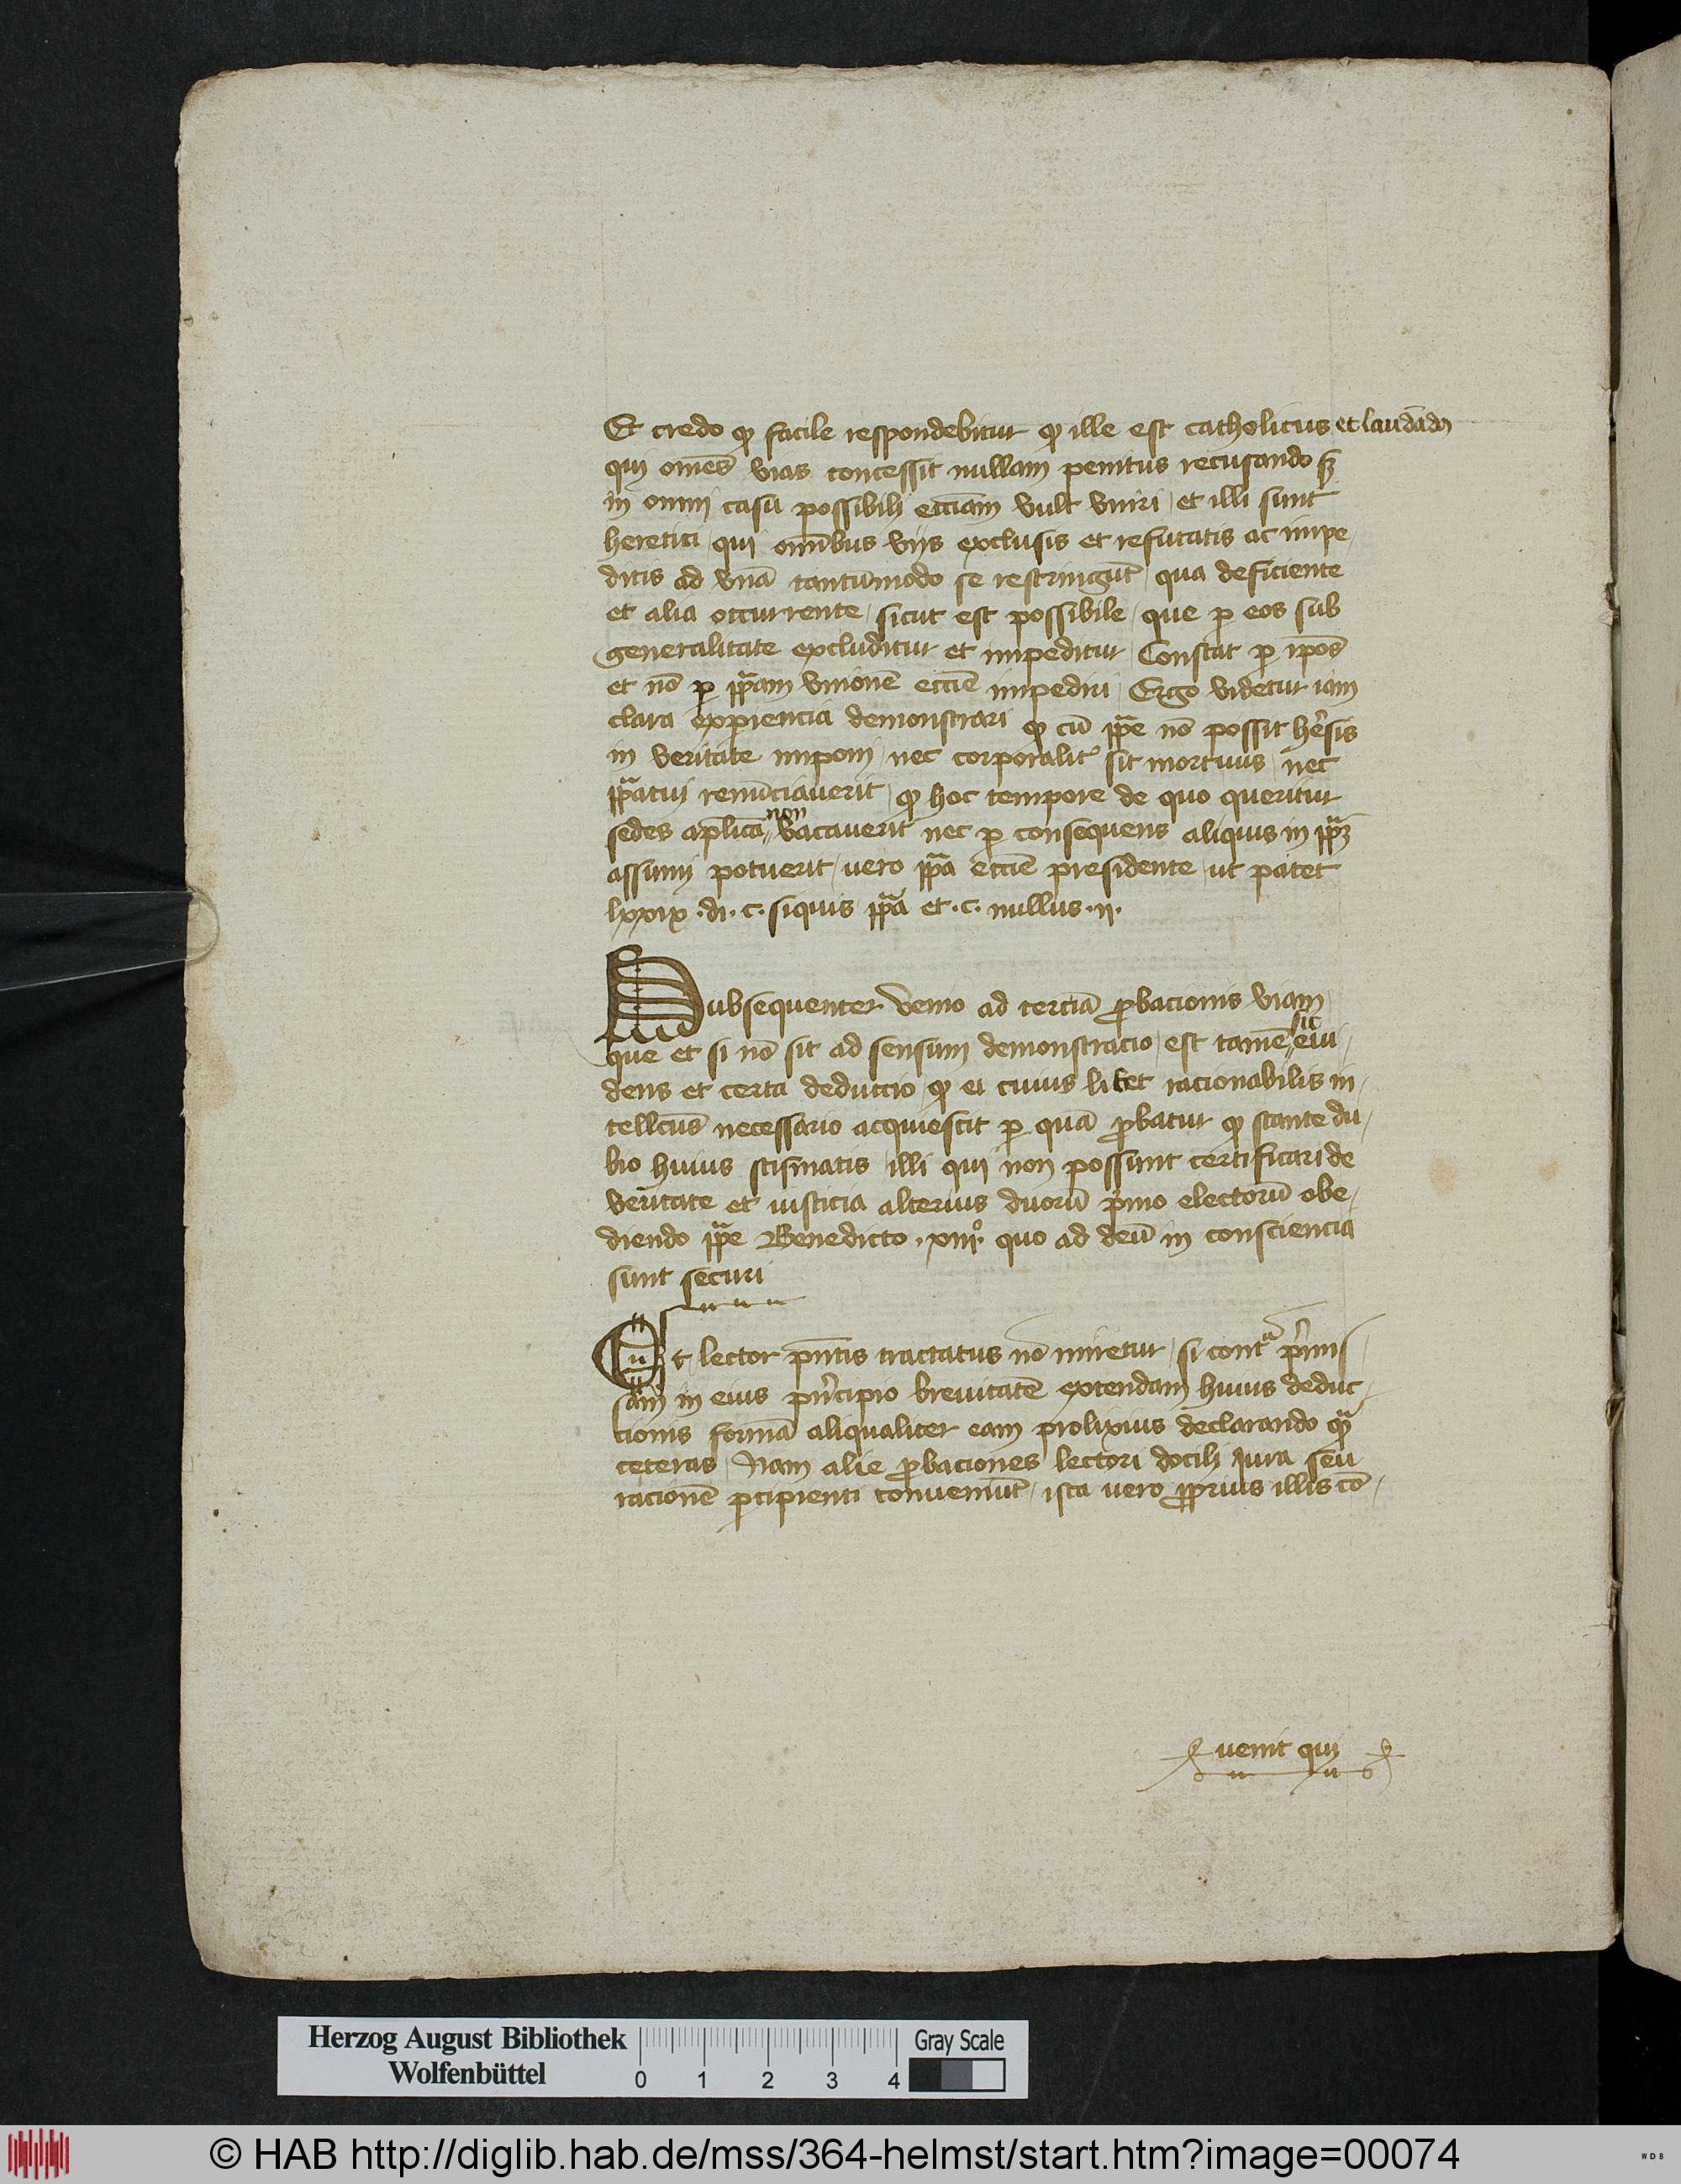 Et credo ꝙ facile respondebitur ꝙ ille est catholicus et laudādꝰ
qui om̄es vias concessit nullam penitus recusando sꝫ
in omni casu possibili eccīam vult vniri / et illi sunt
heretici / qui om̄ibus vijs exclusis et refutatis ac impe /
ditis ad vnā tantūmodo se restringūt / qua deficiente
et alia occurrente / sicut est possibile / que ꝑ eos sub
generalitate excluditur et impeditur / Constat ꝑ ip̄os
et nō ꝑ pp̄am vnionē eccīe impediri / Ergo videtur iam
clara exꝑiencia demonstrari ꝙ cū pp̄e nō possit h̄esis
in veritate imponi / nec corporalit̄ sit mortuus / nec
pp̄atui renūciauerit / ꝙ hoc tempore de quo queritur
sedes ap̄lica non vacauerit nec ꝑ consequens aliquis in pp̄aꝫ
assumi potuerit / vero pp̄a eccīe presidente / ut patet
lxxix . di . c . siquis pp̄a et . c . nullus . ii .
Subsequenter venio ad terciā ꝓbacionis viam
que et si nō sit ad sensum demonstracio / est tamē sic eui /
dens et certa deduccio / ꝙ ei cuius libet racionabilis in /
tellc̄us necessario acquiescit ꝑ quā ꝓbatur ꝙ stante du /
bio huius scismatis / illi qui non possunt certificari de
veritate et iusticia alterius duorū p̄mo electorū obe /
diendo pp̄e Benedicto . xiiiº . quo ad deū in consciencia
sunt securi
Ut lector pn̄tis tractatus nō miretur / si contᵃ p̄mis /
sam in eius pn̄cipio breuitatē extendam huius deduc /
cionis formā aliqualiter eam prolixius declarando qᵃ̄
ceteras / Nam alie ꝓbaciones lectori docili iura seu
racionē ꝑcipienti conueniūt / ista vero ꝓprius illis cō /
uenit qui
Herzog August Bibliothek
Wolfenbüttel
0 1 2 3 4
Gray Scale
© HAB http://diglib.hab.de/mss/364-helmst/start.htm?image=00074
WDB